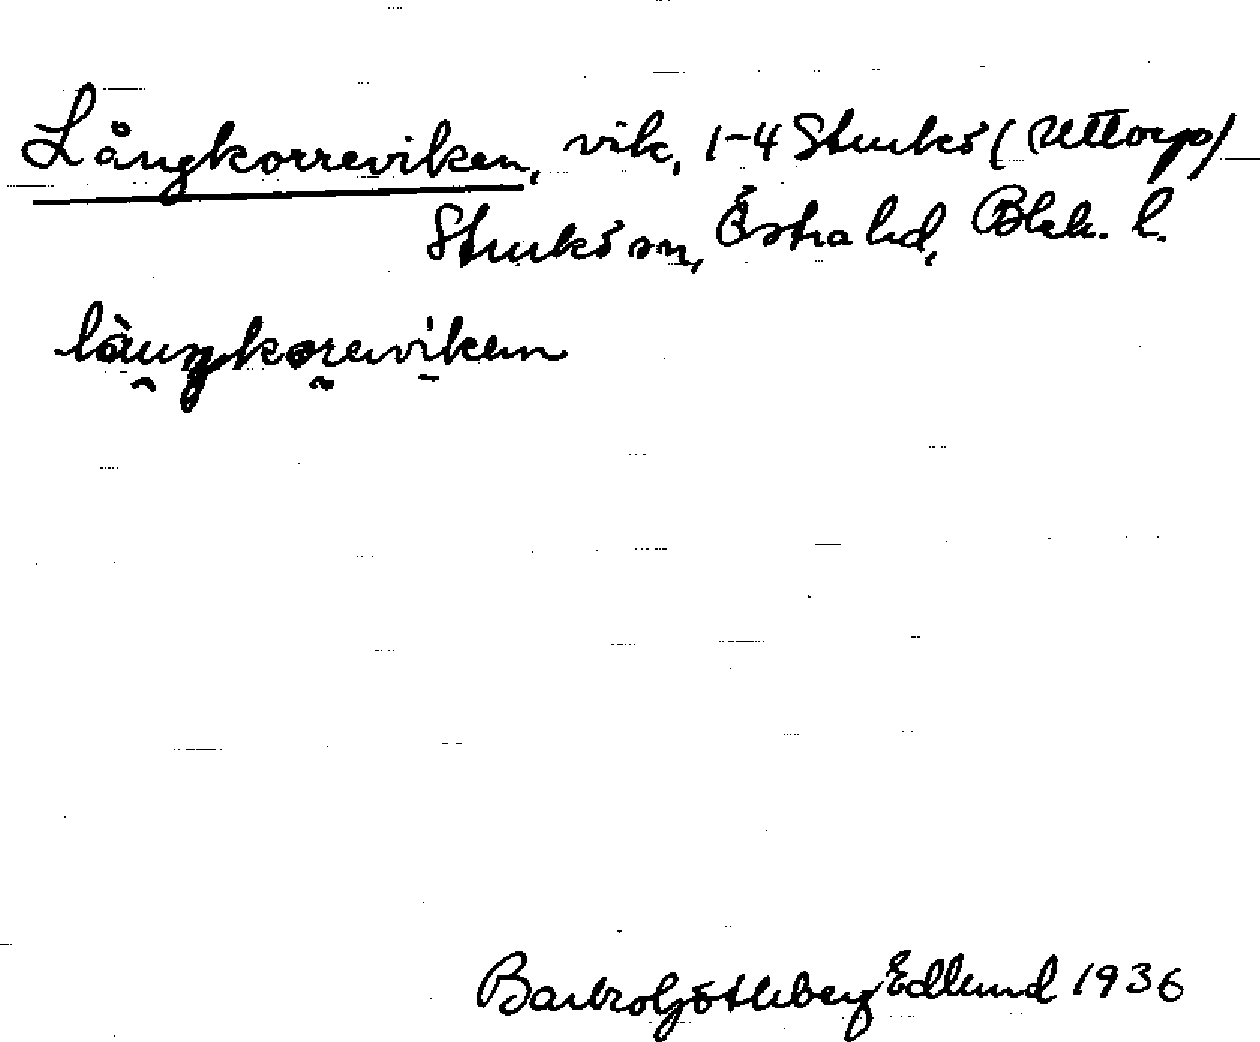 Långkorreviken, vik, 1-4 Sturkö (Uttorp)
Sturkö sn, Östra hd, Blek. l.
làuŋkoreviken
Barbro Götleberg Edlund 1936